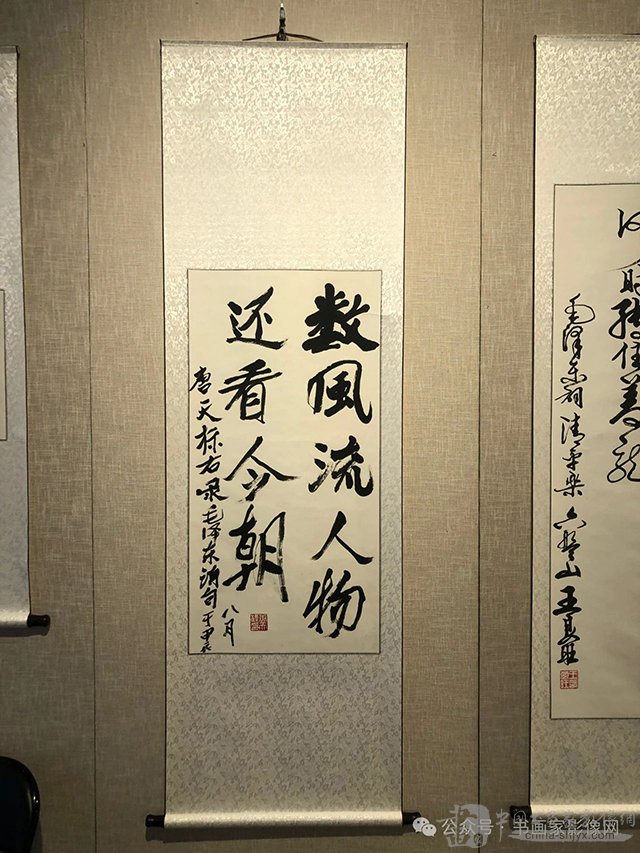 数風流人物
还看今朝
唐天标右录毛泽东词句于甲辰
八月
毛泽东词清平乐六盘山
公众号·书画家影像网
china-shjyx.com